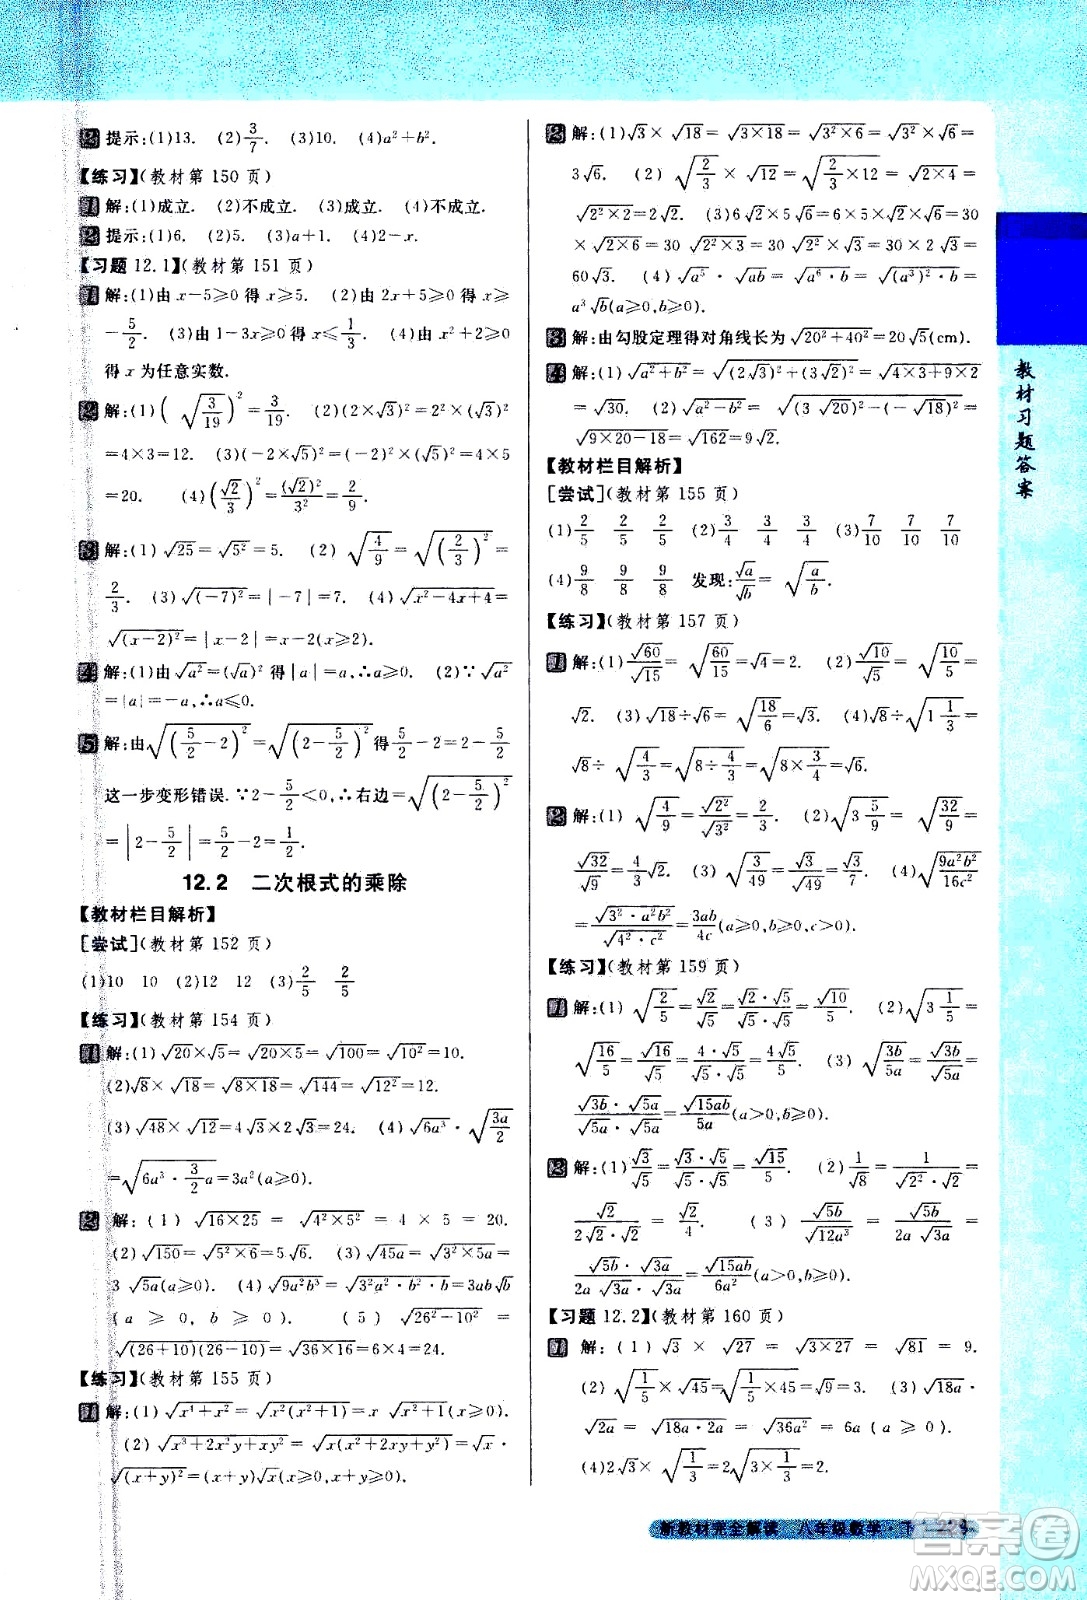 2 提示:(1)13. (2)3/7. (3)10. (4)a²+b².
【练习】(教材第 150 页)
1 解:(1)成立. (2)不成立. (3)成立. (4)不成立.
2 提示:(1)6. (2)5. (3)a+1. (4)2-x.
【习题 12.1】(教材第 151 页)
1 解:(1)由 x-5⩾0 得 x⩾5. (2)由 2x+5⩾0 得 x⩾
-5/2. (3)由 1-3x⩾0 得 x⩽1/3. (4)由 x²+2⩾0
得 x 为任意实数.
2 解:(1)(√(3/19))²=3/19. (2)(2×√3)²=2²×(√3)²
=4×3=12. (3)(-2×√5)²=(-2)²×(√5)²=4×5
=20. (4)(√2/3)²=(√2)²/3²=2/9.
3 解:(1)√25=√(5²)=5. (2)√(4/9)=√((2/3)²)=
2/3. (3)√((-7)²)=|-7|=7. (4)√(x²-4x+4)=
√((x-2)²)=|x-2|=x-2(x⩾2).
4 解:(1)由√(a²)=(√a)²得|a|=a,∴a⩾0. (2)∵√(a²)
=|a|=-a,∴a⩽0.
5 解:由√((5/2-2)²)=√((2-5/2)²)得5/2-2=2-5/2
这一步变形错误.∵2-5/2<0,∴右边=√((2-5/2)²)
=|2-5/2|=5/2-2=1/2=左边.
12.2 二次根式的乘除
【教材栏目解析】
[尝试](教材第 152 页)
(1)10 10 (2)12 12 (3)2/5 2/5
【练习】(教材第 154 页)
1 解:(1)√20×√5=√(20×5)=√100=√(10²)=10.
(2)√8×√18=√(8×18)=√144=√(12²)=12.
(3)√48×√12=4√3×2√3=24. (4)√(6a³)·√(3a/2)
=√(6a³·(3/2)a)=√(9a⁴)=3a²(a⩾0).
2 解:(1)√(16×25)=√(4²×5²)=4×5=20.
(2)√150=√(5²×6)=5√6. (3)√(45a)=√(3²×5a)=
3√(5a)(a⩾0). (4)√(9a²b³)=√(3²a²·b²·b)=3ab√b
(a⩾0,b⩾0). (5)√(26²-10²)=
√((26+10)(26-10))=√(36×16)=6×4=24.
【练习】(教材第 155 页)
1 解:(1)√(x⁴+x²)=√(x²(x²+1))=x√(x²+1)(x⩾0).
(2)√(x³+2x²y+xy²)=√(x(x²+2xy+y²))=√x·
√((x+y)²)=(x+y)√x(x⩾0,x+y⩾0).
2 解:(1)√3×√18=√(3×18)=√(3²×6)=√(3²)×√6=
3√6. (2)√(2/3)×√12=√(2/3×12)=√(2×4)=
√(2²×2)=2√2. (3)6√8×5√6=6×5×√(8×6)=30
×√(2²×2×6)=30×√(2²×2²×3)=30×2×2×√3=
60√3. (4)√(a⁵)·√(ab)=√(a⁶·b)=√((a³)²·b)=
a³√b(a⩾0,b⩾0).
3 解:由勾股定理得对角线长为√(20²+40²)=20√5(cm).
4 解:(1)√(a²+b²)=√((2√3)²+(3√2)²)=√(4×3+9×2)
=√30. (2)√(a²-b²)=√((3√20)²-(-√18)²)=
√(9×20-18)=√162=9√2.
【教材栏目解析】
[尝试](教材第 155 页)
(1)2/5 2/5 2/5 (2)3/4 3/4 3/4 (3)7/10 7/10 7/10
(4)9/8 9/8 9/8 发现:√a/√b=√(a/b).
【练习】(教材第 157 页)
1 解:(1)√60/√15=√(60/15)=√4=2. (2)√10/√5=√(10/5)=
√2. (3)√18÷√6=√(18/6)=√3. (4)√8÷√(1 1/3)=
√8÷√(4/3)=√(8÷4/3)=√(8×3/4)=√6.
2 解:(1)√(4/9)=√(2²)/√(3²)=2/3. (2)√(3 5/9)=√(32/9)=
√32/√9=4√2/3. (3)√(3/49)=√3/√49=√3/7. (4)√(9a²b²/16c²)=
√(3²·a²b²)/√(4²·c²)=3ab/4c(a⩾0,b⩾0,c>0).
【练习】(教材第 159 页)
1 解:(1)√(2/5)=√2/√5=√2·√5/√5·√5=√10/5. (2)√(3 1/5)=
√(16/5)=√16/√5=4·√5/√5·√5=4√5/5. (3)√(3b/5a)=√3b/√5a=
√3b·√5a/√5a·√5a=√15ab/5a(a>0,b⩾0).
2 解:(1)√3/√5=√3·√5/√5·√5=√15/5. (2)1/√8=√2/√(2²·√2)=
√2/2√2·√2=√2/4. (3)√5b/√12a³=√5b/2a√3a=
√5b·√3a/2a√3a·√3a=√15ab/6a²(a>0,b⩾0).
【习题 12.2】(教材第 160 页)
1 解:(1)√3×√27=√(3×27)=√81=9.
(2)√(1/5)×√45=√(1/5×45)=√9=3. (3)√(18a)·
√(2a)=√(18a·2a)=√(36a²)=6a(a⩾0).
(4)2√3×√(1/3)=2√(3×1/3)=2.
教材习题答案
新教材完全解读 八年级数学·下
答案圈
MXQE.COM